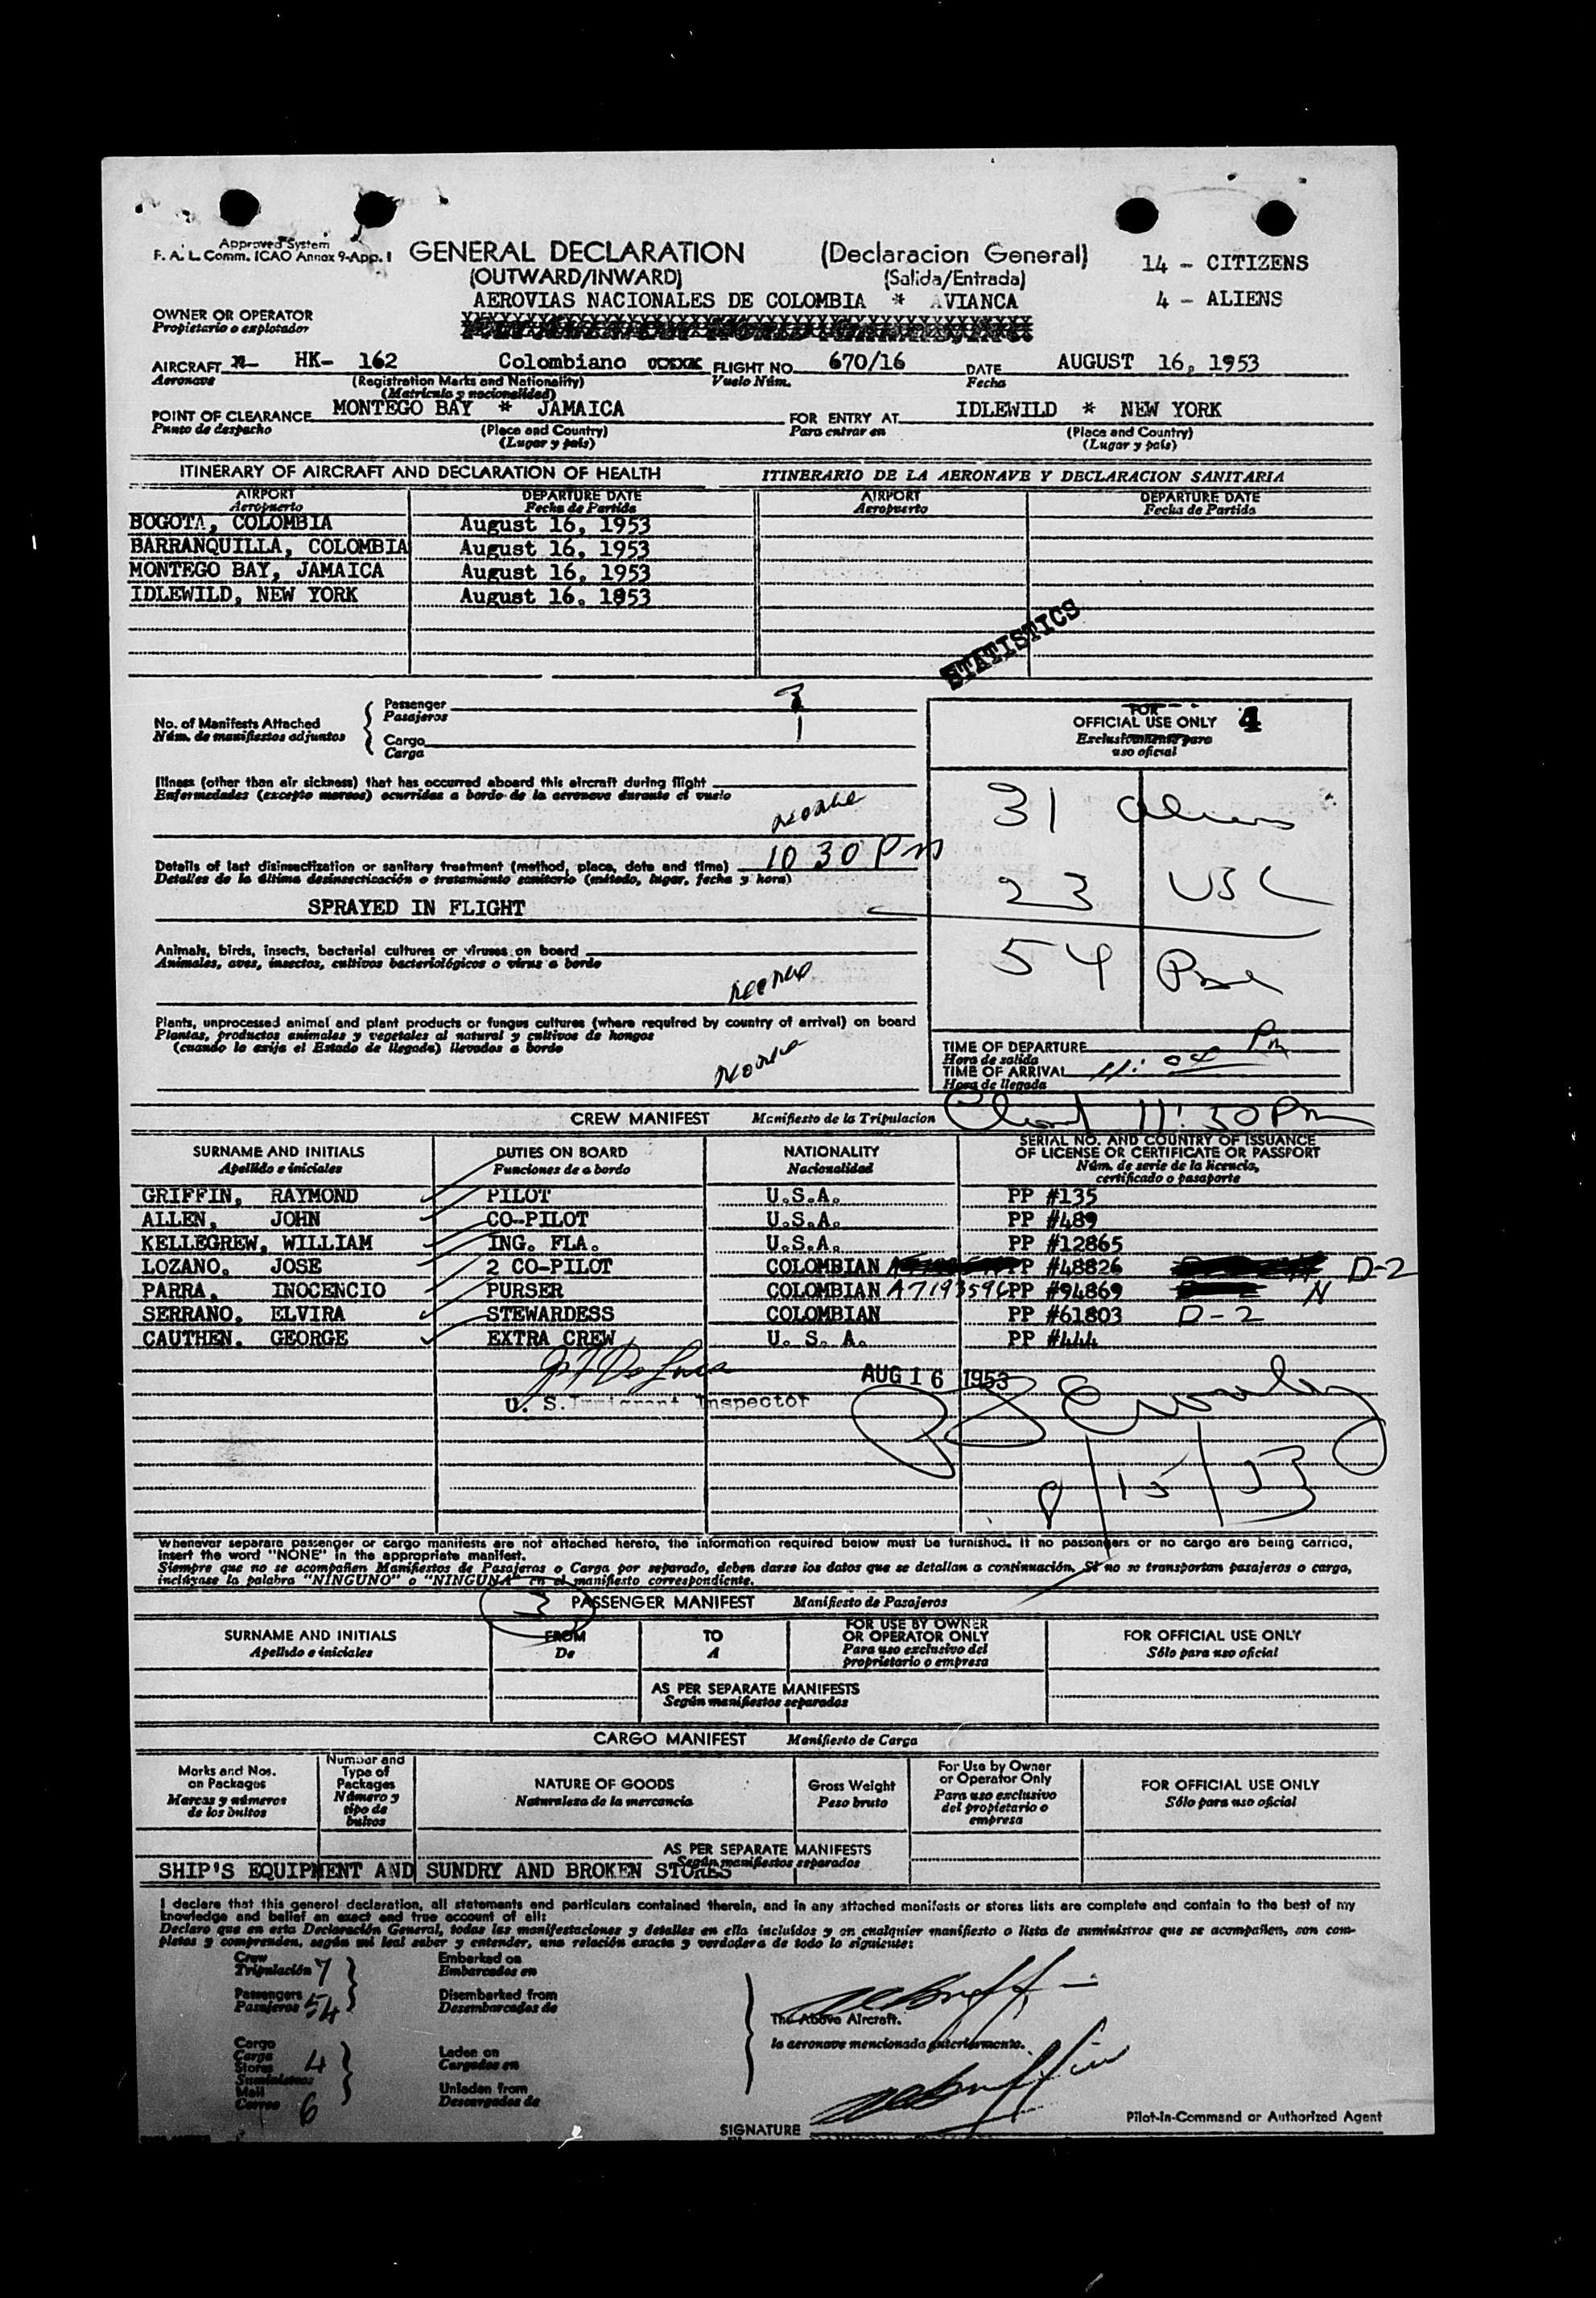 Approved System
F. A. L. Comm. ICAO Annex 9-App. I
GENERAL DECLARATION (Declaracion General)
(OUTWARD/INWARD) (Salida/Entrada)
14 - CITIZENS
4 - ALIENS
AEROVIAS NACIONALES DE COLOMBIA * AVIANCA
OWNER OR OPERATOR
Propietario o explotador
AIRCRAFT HK- 162 Colombiano FLIGHT NO. 670/16 DATE AUGUST 16, 1953
Aeronave (Registration Marks and Nationality) Vuelo Núm. Fecha
(Matricula y nacionalidad)
POINT OF CLEARANCE MONTEGO BAY * JAMAICA FOR ENTRY AT IDLEWILD * NEW YORK
Punto de despacho (Place and Country) Para entrar en (Place and Country)
(Lugar y país) (Lugar y país)
ITINERARY OF AIRCRAFT AND DECLARATION OF HEALTH ITINERARIO DE LA AERONAVE Y DECLARACION SANITARIA
AIRPORT DEPARTURE DATE AIRPORT DEPARTURE DATE
Aeropuerto Fecha de Partida Aeropuerto Fecha de Partida
BOGOTA, COLOMBIA August 16, 1953
BARRANQUILLA, COLOMBIA August 16, 1953
MONTEGO BAY, JAMAICA August 16, 1953
IDLEWILD, NEW YORK August 16. 1853
STATISTICS
No. of Manifests Attached
Núm. de manifiestos adjuntos
Passenger
Pasajeros
Cargo 1
Carga
FOR
OFFICIAL USE ONLY 4
Exclusivamente para
uso oficial
Illness (other than air sickness) that has occurred aboard this aircraft during flight
Enfermedades (excepto mareos) ocurridas a bordo de la aeronave durante el vuelo
None
31 Aliens
Details of last disinsectization or sanitary treatment (method, place, date and time) 10 30 Pm
Detalles de la última desinsectización o tratamiento sanitario (método, lugar, fecha y hora)
23 USC
SPRAYED IN FLIGHT
54
Animals, birds, insects, bacterial cultures or viruses on board
Animales, aves, insectos, cultivos bacteriológicos o virus a bordo
None
Plants, unprocessed animal and plant products or fungus cultures (where required by country of arrival) on board
Plantas, productos animales y vegetales al natural y cultivos de hongos
(cuando lo exija el Estado de llegada) llevados a bordo
None
TIME OF DEPARTURE
Hora de salida
TIME OF ARRIVAL 11:04 Pm
Hora de llegada
11:30 Pm
CREW MANIFEST Manifiesto de la Tripulacion
SURNAME AND INITIALS DUTIES ON BOARD NATIONALITY SERIAL NO. AND COUNTRY OF ISSUANCE
OF LICENSE OR CERTIFICATE OR PASSPORT
Apellido e iniciales Funciones de a bordo Nacionalidad Núm. de serie de la licencia,
certificado o pasaporte
GRIFFIN, RAYMOND PILOT U.S.A. PP #135
ALLEN, JOHN CO-PILOT U.S.A. PP #489
KELLEGREW, WILLIAM ING. FLA. U.S.A. PP #12865
LOZANO, JOSE 2 CO-PILOT COLOMBIAN PP #48826 D-2
PARRA, INOCENCIO PURSER COLOMBIAN A7193596 PP #94869 N
SERRANO, ELVIRA STEWARDESS COLOMBIAN PP #61803 D-2
CAUTHEN, GEORGE EXTRA CREW U. S. A. PP #444
AUG 16 1953
U. S. Immigrant Inspector
8/15/53
Whenever separate passenger or cargo manifests are not attached hereto, the information required below must be furnished. If no passengers or no cargo are being carried,
insert the word "NONE" in the appropriate manifest.
Siempre que no se acompañen Manifiestos de Pasajeros o Carga por separado, deben darse los datos que se detallan a continuación. Si no se transportan pasajeros o carga,
inclúyase la palabra "NINGUNO" o "NINGUNA" en el manifiesto correspondiente.
3 PASSENGER MANIFEST Manifiesto de Pasajeros
SURNAME AND INITIALS FROM TO FOR USE BY OWNER
OR OPERATOR ONLY FOR OFFICIAL USE ONLY
Apellido e iniciales De A Para uso exclusivo del
propietario o empresa Sólo para uso oficial
AS PER SEPARATE MANIFESTS
Según manifiestos separados
CARGO MANIFEST Manifiesto de Carga
Marks and Nos.
on Packages
Marcas y números
de los bultos
Number and
Type of
Packages
Número y
tipo de
bultos
NATURE OF GOODS
Naturaleza de la mercancia
Gross Weight
Peso bruto
For Use by Owner
or Operator Only
Para uso exclusivo
del propietario o
empresa
FOR OFFICIAL USE ONLY
Sólo para uso oficial
AS PER SEPARATE MANIFESTS
Según manifiestos separados
SHIP'S EQUIPMENT AND SUNDRY AND BROKEN STORES
I declare that this general declaration, all statements and particulars contained therein, and in any attached manifests or stores lists are complete and contain to the best of my
knowledge and belief an exact and true account of all:
Declaro que en esta Declaración General, todas las manifestaciones y detalles en ella incluídos y en cualquier manifiesto o lista de suministros que se acompañen, son com-
pletas y comprenden, según mi leal saber y entender, una relación exacta y verdadera de todo lo siguiente:
Crew
Tripulación 7
Passengers
Pasajeros 54
Embarked on
Embarcados en
Disembarked from
Desembarcados de
The Above Aircraft.
la aeronave mencionada anteriormente.
Cargo
Carga
Stores 4
Suministros
Mail
Correo 6
Laden on
Cargados en
Unladen from
Descargados de
SIGNATURE
Pilot-in-Command or Authorized Agent